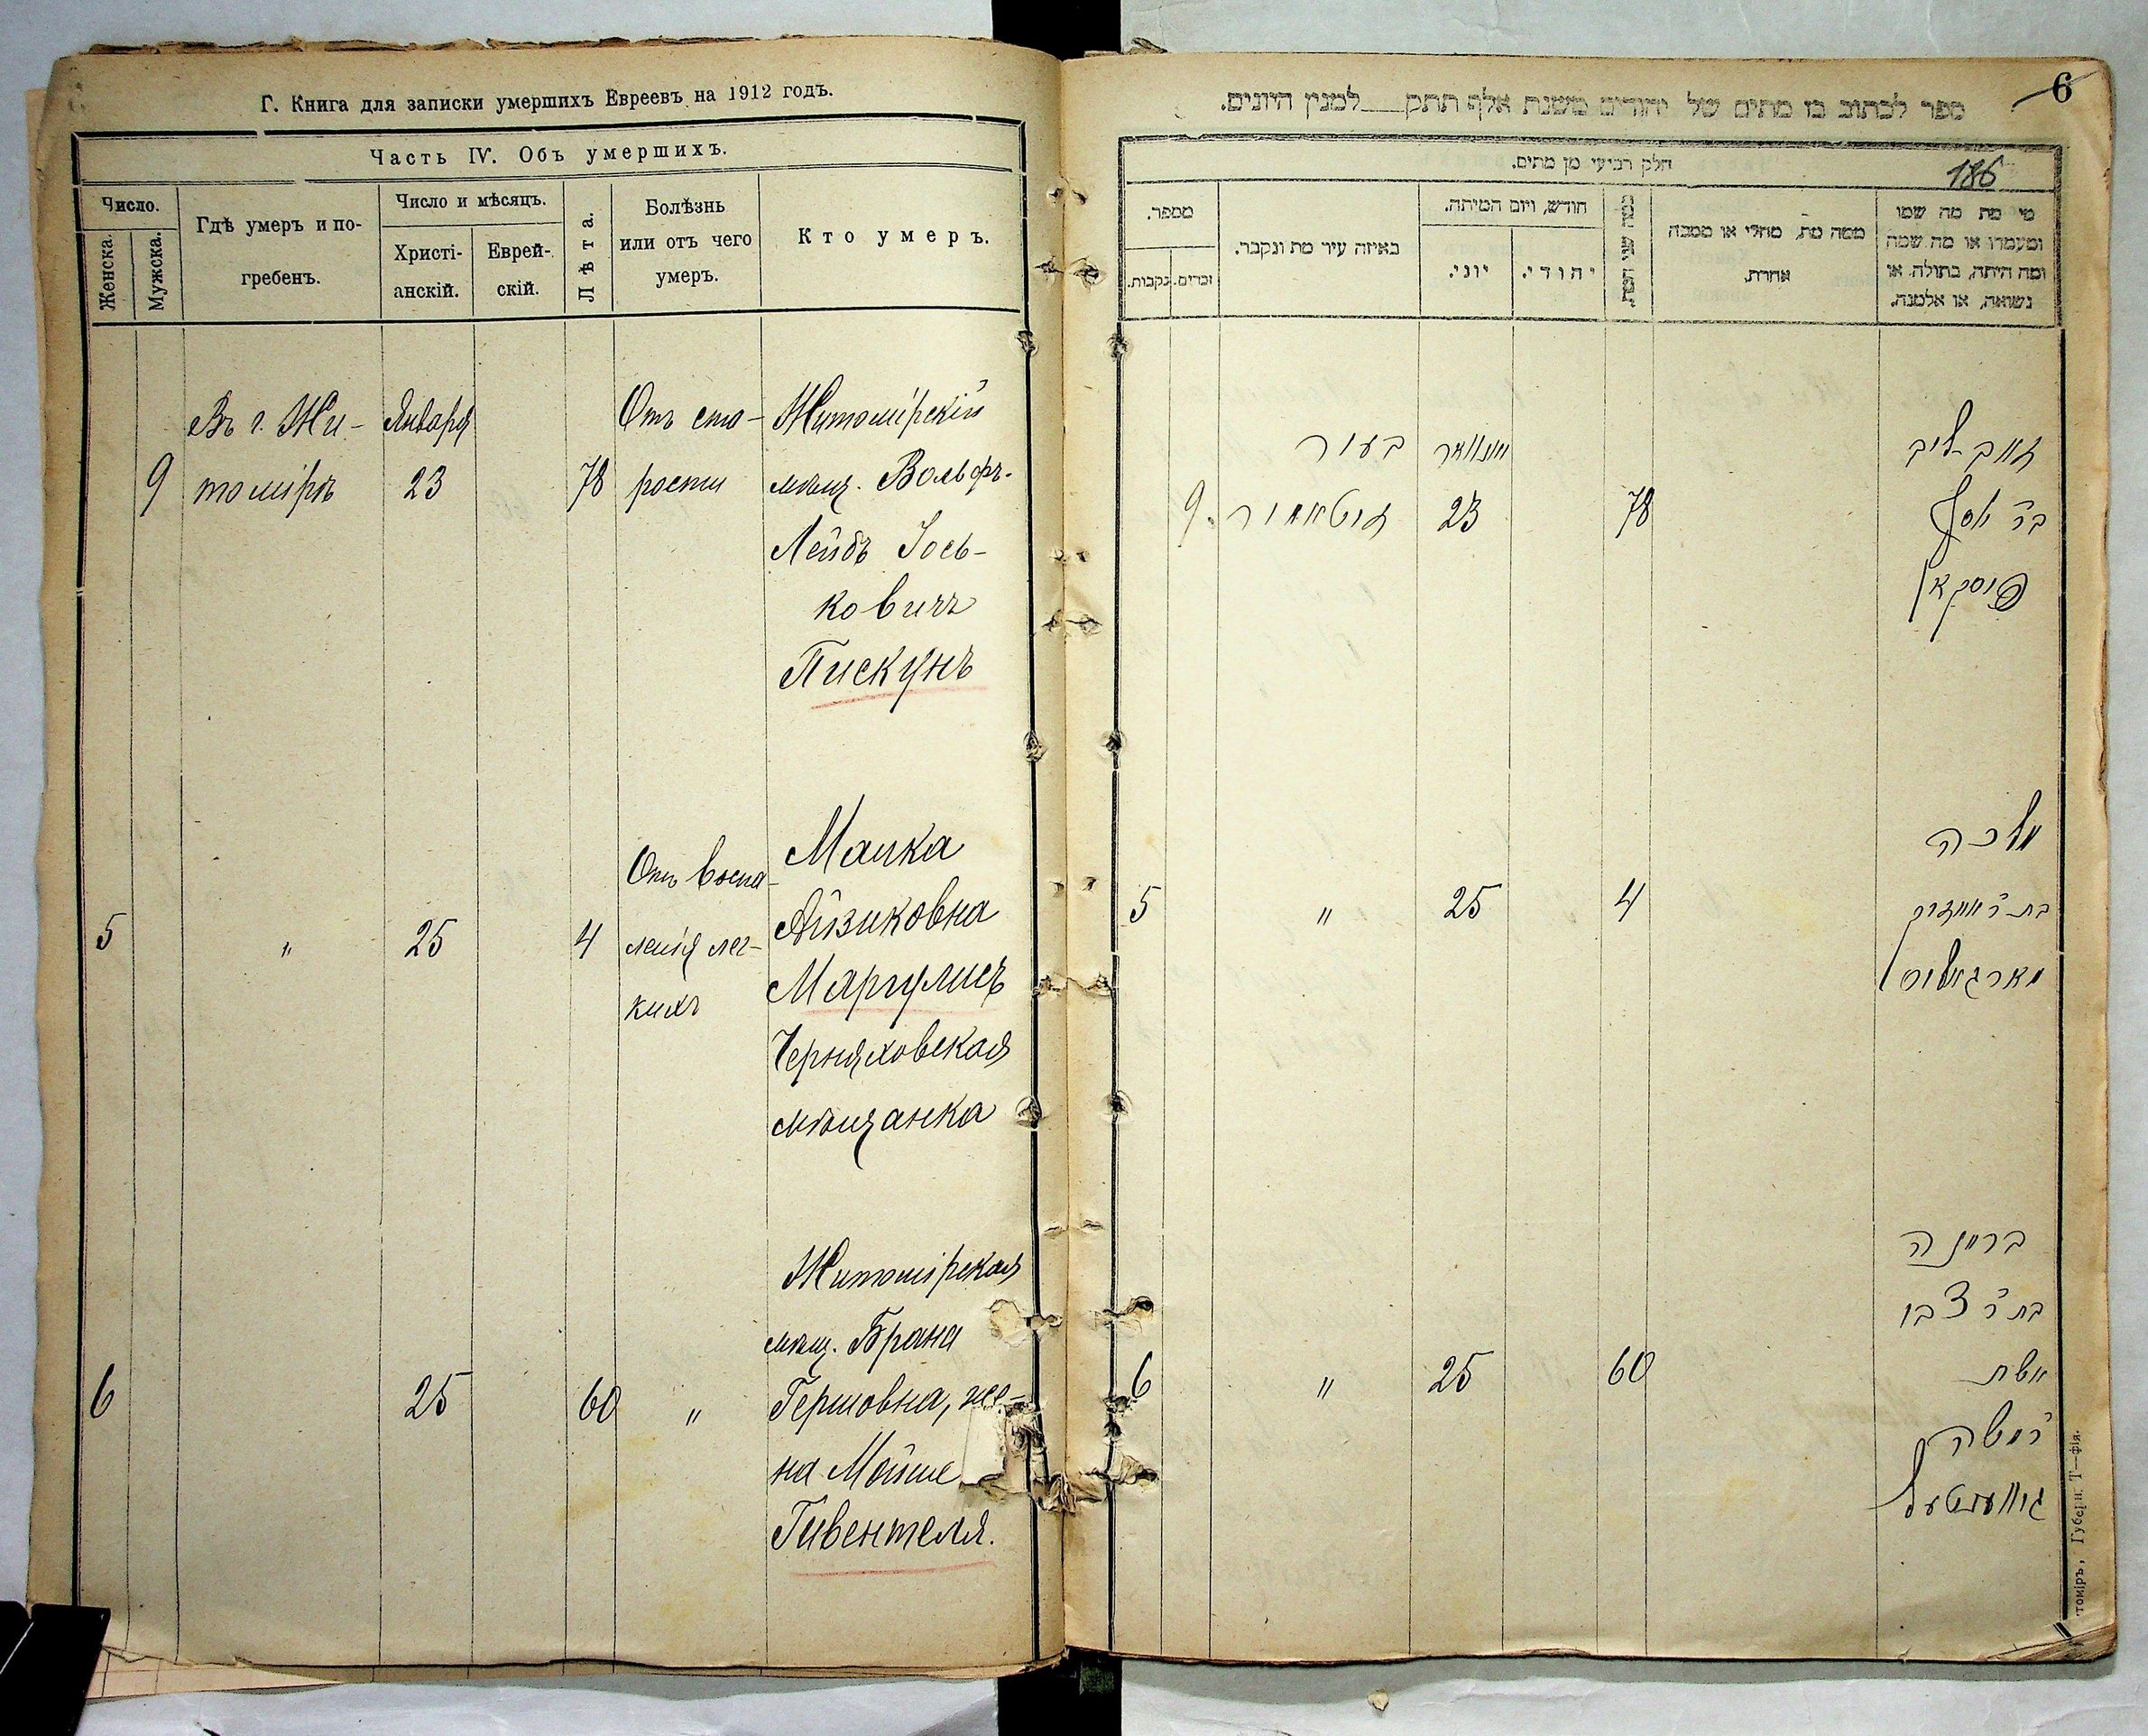 Г. Книга для записки умершихъ Евреевъ на 1912 годъ.
Часть IV. Объ умершихъ.
Число.
Женска.
Мужска.
Гдѣ умеръ и по-
гребенъ.
Число и мѣсяцъ.
Христі-
анскій.
Еврей-
скій.
Лѣта.
Болѣзнь
или отъ чего
умеръ.
Кто умеръ.
9
Въ г. Жи-
томірѣ
Января
23
78
Отъ ста-
рости
Житомірскій
мѣщ. Вольфъ-
Лейбъ Іось-
ковичъ
Пискунъ
5
"
25
4
Отъ воспа-
ленія лег-
кихъ
Малка
Айзиковна
Маргулисъ
Черняховская
мѣщанка
6
25
60
"
Житомірская
мѣщ. Брана
Гершовна, же-
на Мойше
Гивентеля.
6
ספר לכתוב בו מתים של יהודים משנת אלף תתק למנין היונים.
חלק רביעי מן מתים.
186
מספר.
נקבות.
זכרים.
באיזה עיר מת ונקבר.
חודש, ויום המיתה.
יוני.
יהודי.
כמה שני המת.
ממה מת, מחלי או ממכה
אחרת.
מי מת מה שמו
ומעמדו או מה שמה
ומה היתה, בתולה או
נשואה, או אלמנה.
9.
בעיר
זיטאמיר
יאנוואר
23
78
וואב ליב
בר יוסף
פיסקאן
5
"
25
4
מלכה
בת ר' אייזיק
מארגאליס
6
"
25
60
בריינה
בת ר' צבי
אשת
ר' משה
גיווענטעל
томіръ, Губерн. Т—фія.